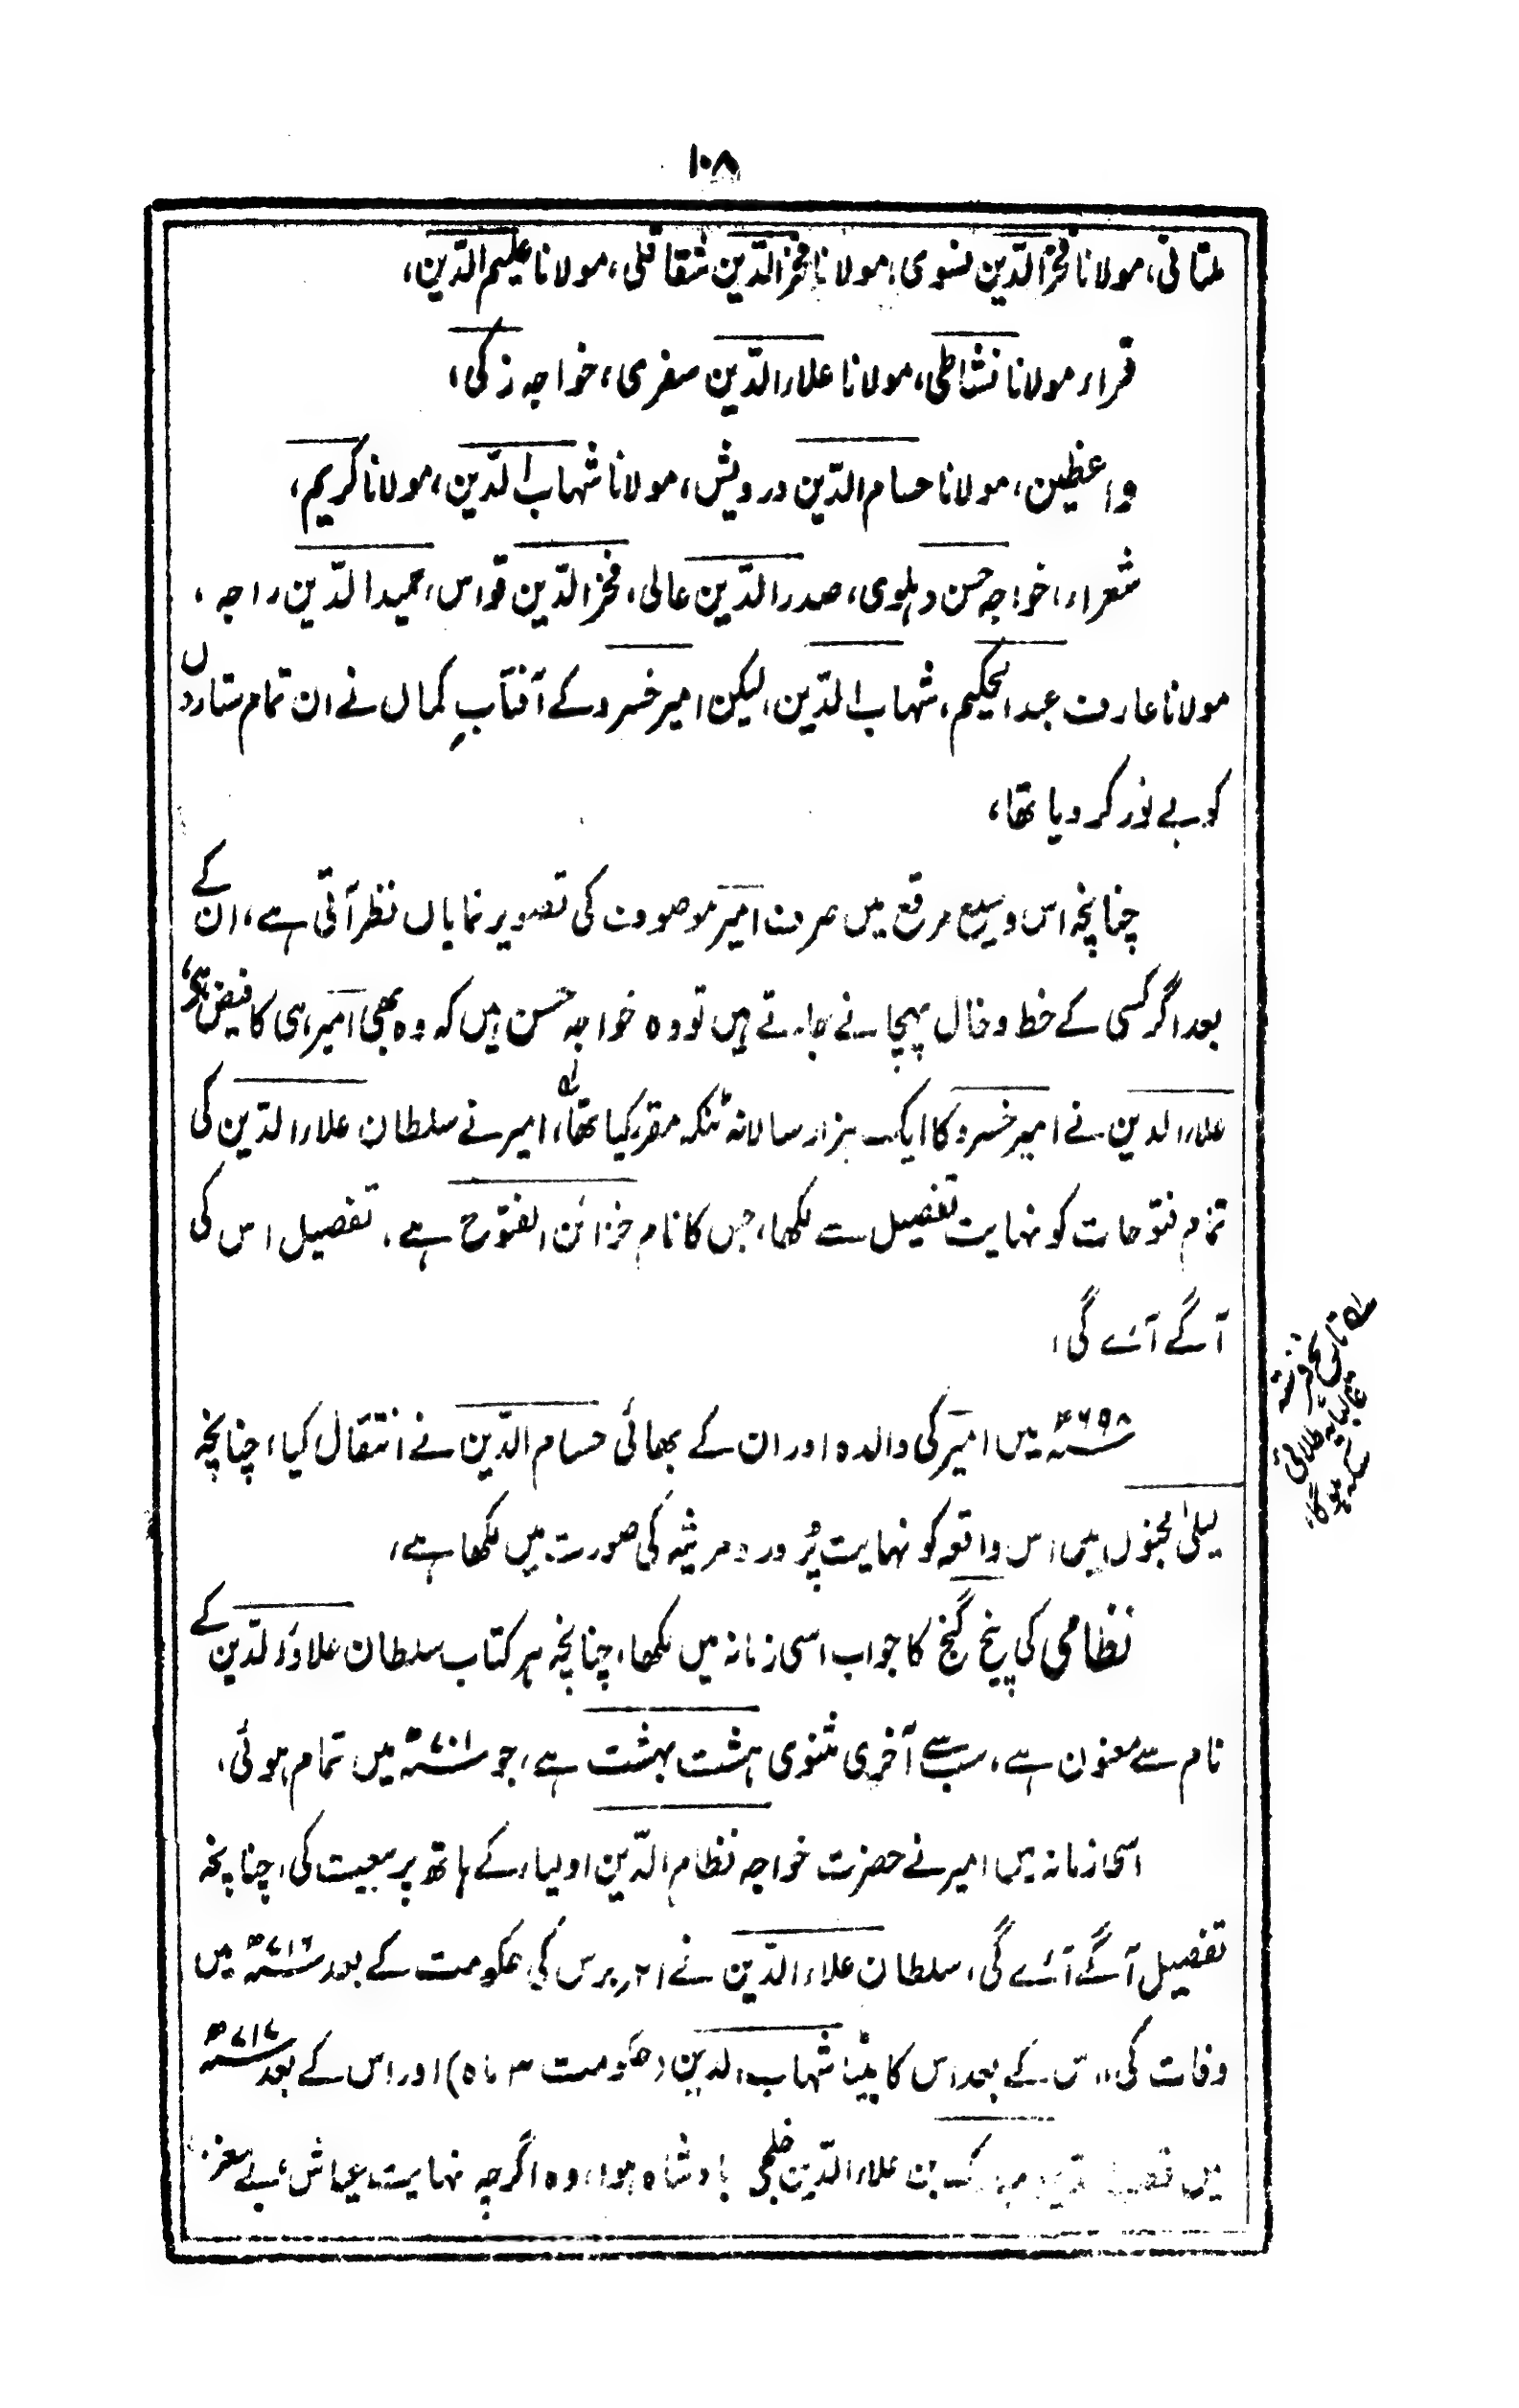 ۱۰۸
ملتانی، مولانا فخرالدّین نسوی، مولانا فخرالدّین شقاقلی، مولانا علیم الدّین،
قراء مولانا نشاطی، مولانا علاءالدّین سفری، خواجہ زکی،
واعظین، مولانا حسام الدّین درویش، مولانا شہاب الدّین، مولانا کریم،
شعراء، خواجہ حسن دہلوی، صدرالدّین عالی، فخرالدّین قواس، حمیدالدّین راجہ،
مولانا عارف عبدالحکیم، شہاب الدّین، لیکن امیر خسرو کے آفتابِ کمال نے ان تمام ستاروں
کو بے نور کر دیا تھا،
چنانچہ اس وسیع مرقع میں صرف امیر موصوف کی تصویر نمایاں نظر آتی ہے، ان کے
بعد اگر کسی کے خط و خال پہچانے جاتے ہیں تو وہ خواجہ حسن ہیں کہ وہ بھی امیر ہی کا فیض ہے،
علاءالدین نے امیر خسرو کا ایک ہزار سالانہ ٹنکہ مقرر کیا تھا، امیر نے سلطان علاءالدّین کی
تمام فتوحات کو نہایت تفصیل سے لکھا، جس کا نام خزائن الفتوح ہے، تفصیل اس کی
آگے آئے گی،
۶۹۸ھ میں امیر کی والدہ اور ان کے بھائی حسام الدّین نے انتقال کیا، چنانچہ
لیلیٰ مجنوں میں اس واقعہ کو نہایت پُر درد مرثیہ کی صورت میں لکھا ہے،
نظامی کی پنج گنج کا جواب اسی زمانہ میں لکھا، چنانچہ ہر کتاب سلطان علاؤالدّین کے
نام سے معنون ہے، سب سے آخری مثنوی ہشت بہشت ہے، جو ۷۰۱ھ میں تمام ہوئی،
اسی زمانہ میں امیر نے حضرت خواجہ نظام الدّین اولیاء کے ہاتھ پر بیعت کی، چنانچہ
تفصیل آگے آئے گی، سلطان علاءالدّین نے ۲۱ برس کی حکومت کے بعد ۷۱۶ھ میں
وفات کی، اس کے بعد اس کا بیٹا شہاب الدین (حکومت ۳ ماہ) اور اس کے بعد ۷۱۷ھ
میں بن علاءالدّین خلجی بادشاہ ہوا، وہ اگرچہ نہایت عیاش، بے مغز
لہ تاریخ فرشتہ
غالباً یہ طلائی
سکہ ہوگا،